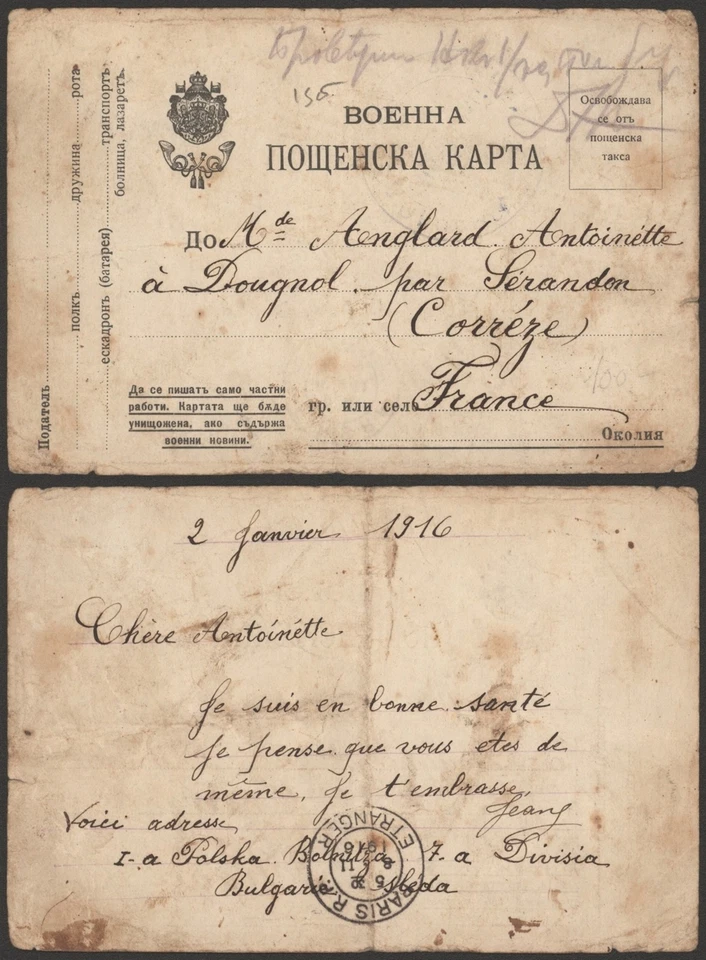 ВОЕННА
ПОЩЕНСКА КАРТА
Освобождава
се отъ
пощенска
такса
До Mde Anglard Antoinétte
à Dougnol par Sérandon
(Corréze)
гр. или село France
Околия
Да се пишатъ само частни
работи. Картата ще бѫде
унищожена, ако съдържа
военни новини.
Податель
полкъ дружина рота
ескадронъ (батарея) транспортъ
болница, лазаретъ.
2 Janvier 1916
Chère Antoinétte
Je suis en bonne santé
je pense que vous etes de
même, Je t'embrasse
Jean
Voici adresse
I-a Polska Bolnitza 7-a Divisia
Bulgaria
PARIS R.P.
ETRANGER